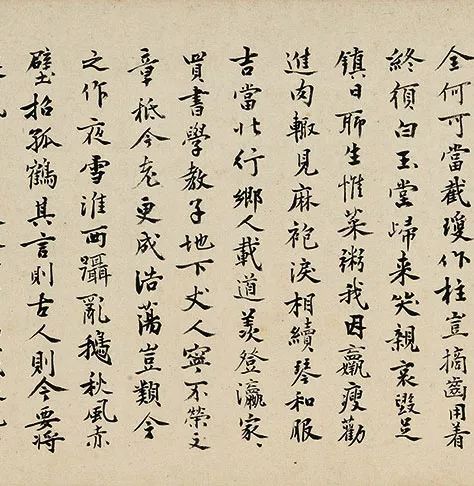 全何可當截瓊作柱豈摘齒用着
終須白玉堂歸来哭親哀毀足
鎮日聊生惟菜粥我因羸瘦勸
進肉輙見麻袍淚相續琴和服
吉當北行鄉人載道羨登瀛家〻
買書學教子地下丈人寧不榮文
章秪今老更成浩蕩豈類今
之作夜雪淮西躡亂鵝秋風赤
壁招孤鶴其言則古人則今要將